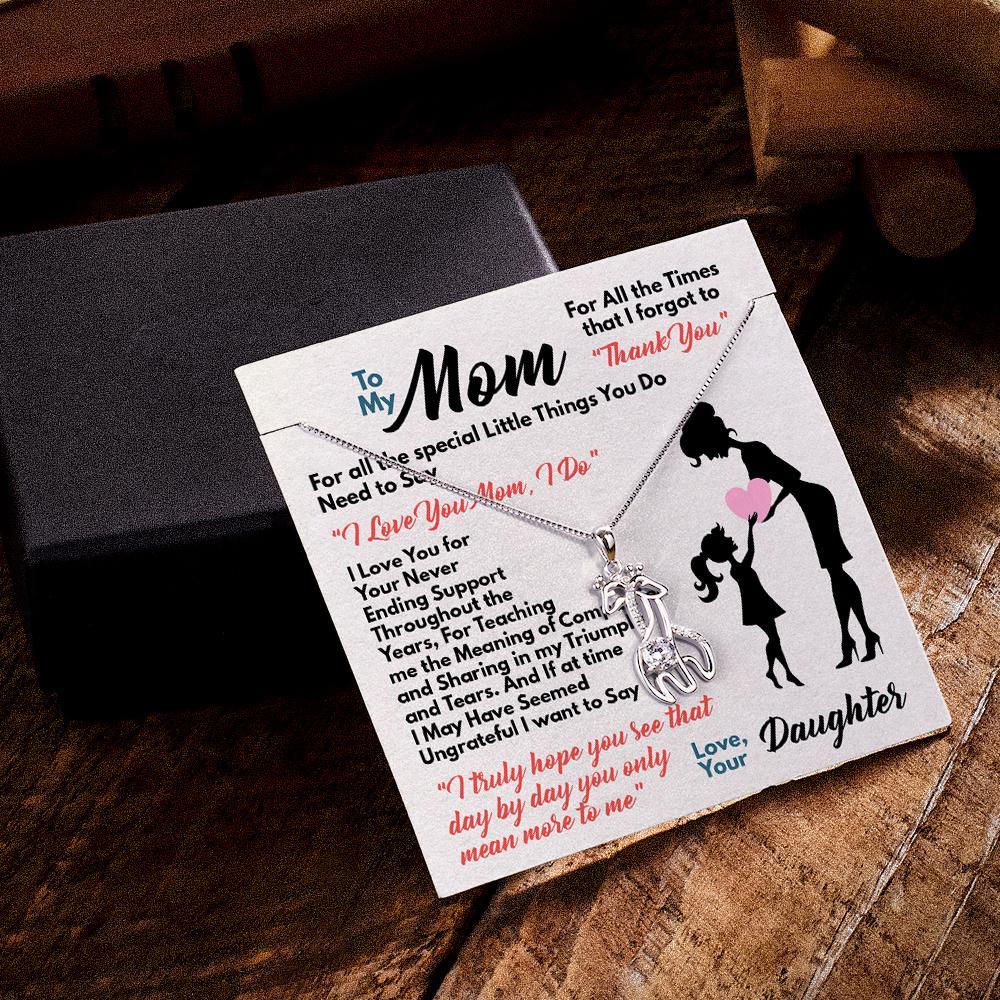 For All the Times
that I forgot to
"Thank You"
To
My
Mom
For all the special Little Things You Do
Need to Say
"I Love You Mom, I Do"
I Love You for
Your Never
Ending Support
Throughout the
Years, For Teaching
me the Meaning of
and Sharing in my
and Tears. And If at time
I May Have Seemed
Ungrateful I want to Say
"I truly hope you see that
day by day you only
mean more to me"
Love,
Your
Daughter